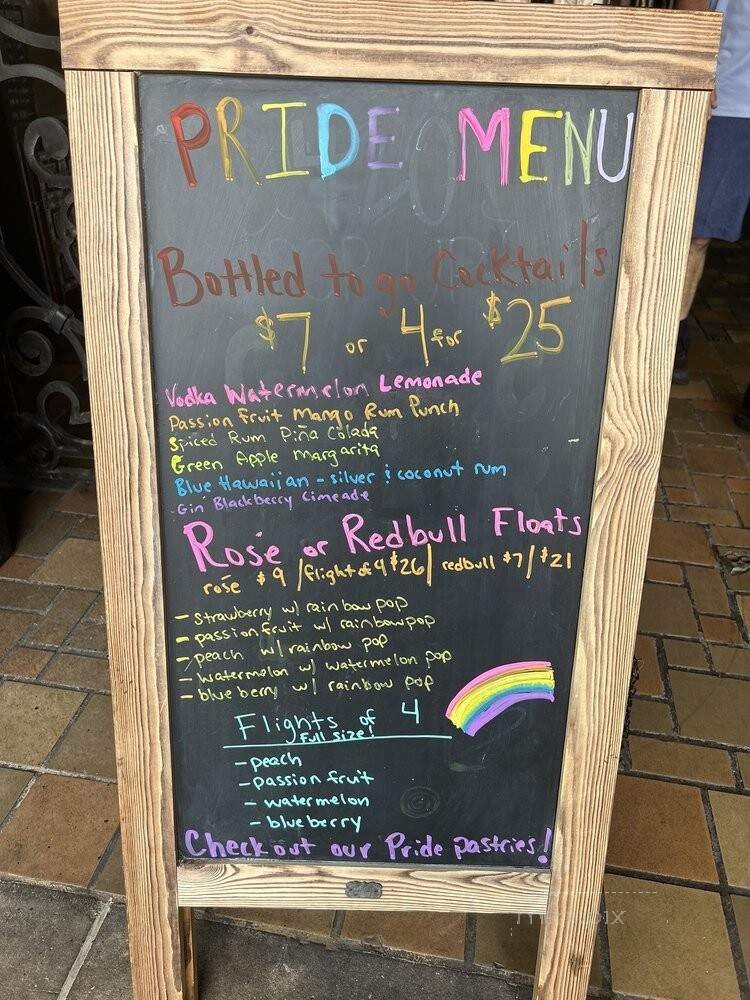 PRIDE MENU
Bottled to go Cocktails
$7 or 4 for $25
Vodka Watermelon Lemonade
Passion Fruit Mango Rum Punch
Spiced Rum Piña Colada
Green Apple Margarita
Blue Hawaiian - silver & coconut rum
Gin Blackberry Limeade
Rosé or Redbull Floats
rosé $9 / flight of 4 $26 | redbull $7 / $21
- strawberry w/ rainbow pop
- passion fruit w/ rainbow pop
- peach w/ rainbow pop
- watermelon w/ watermelon pop
- blueberry w/ rainbow pop
Flights of 4
Full size!
- peach
- passion fruit
- watermelon
- blueberry
Check out our Pride pastries!